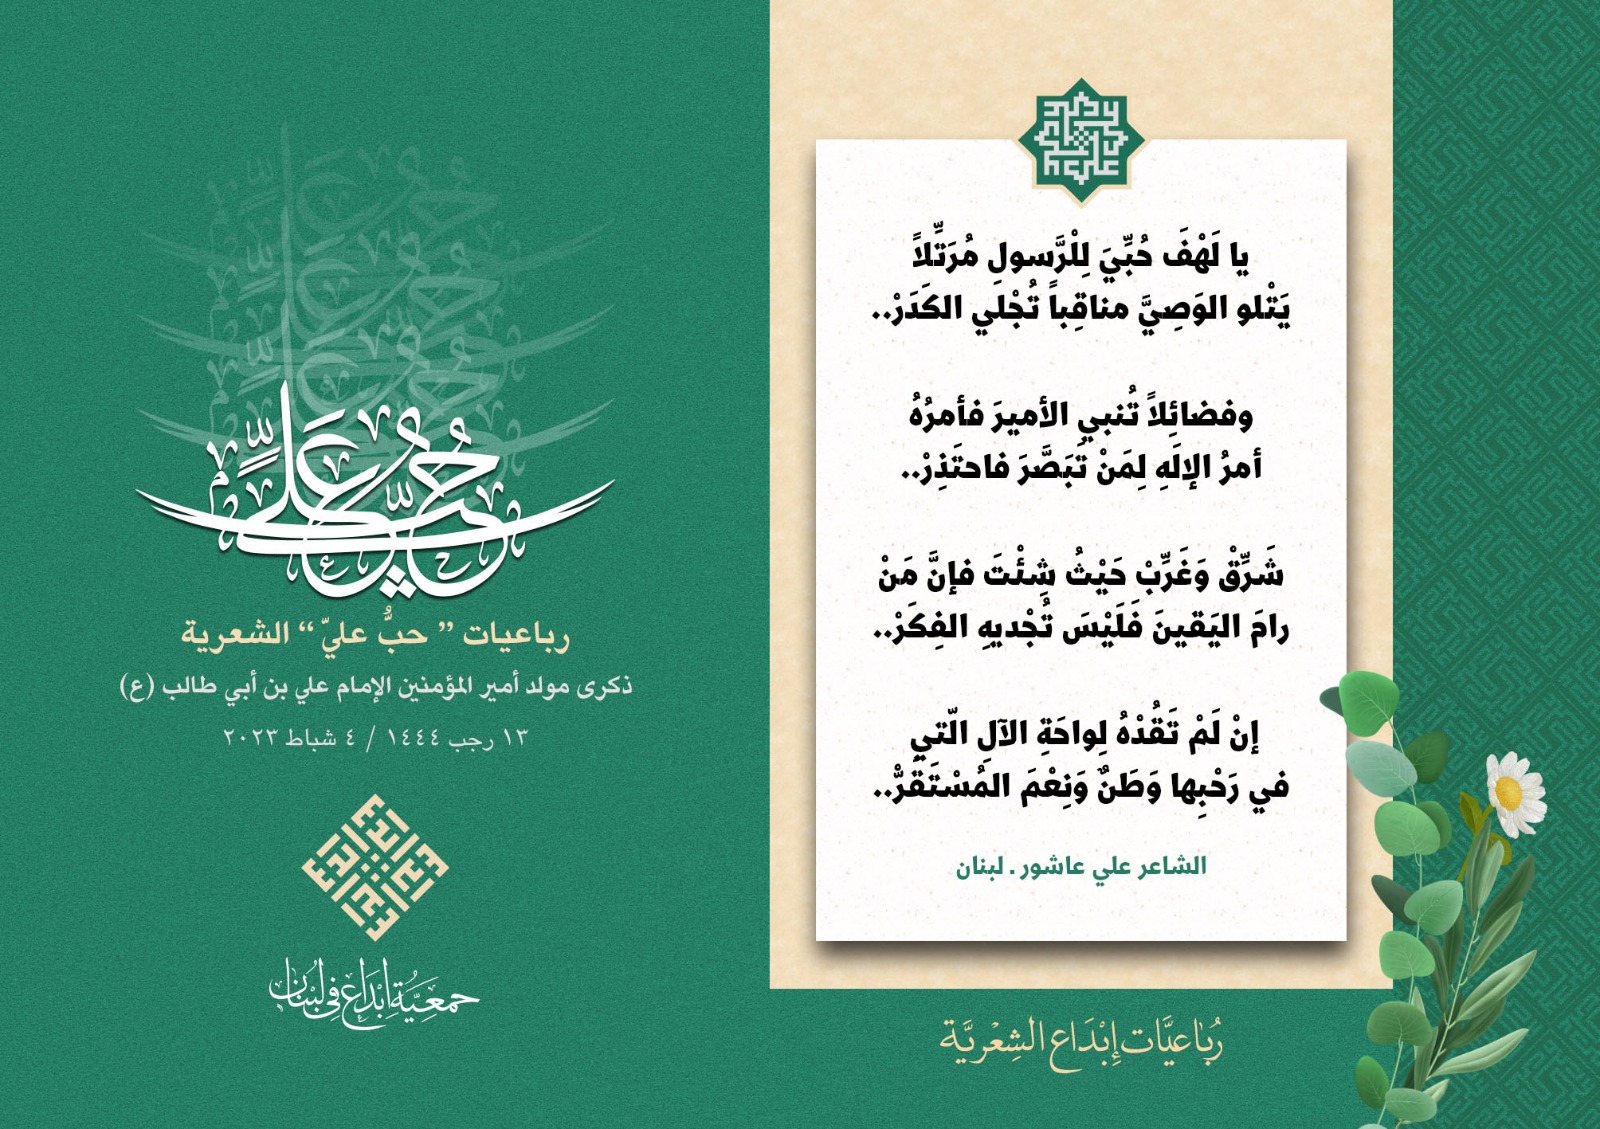 يا لَهْفَ حُبِّيَ لِلْرَّسولِ مُرَتِّلاً
يَتْلو الوَصِيَّ مناقِباً تُجْلي الكَدَرْ..
وفضائِلاً تُنبي الأميرَ فأمرُهُ
أمرُ الإلَهِ لِمَنْ تَبَصَّرَ فاحتَذِرْ..
شَرِّقْ وَغَرِّبْ حَيْثُ شِئْتَ فإنَّ مَنْ
رامَ اليَقينَ فَلَيْسَ تُجْديهِ الفِكَرْ..
إنْ لَمْ تَقُدْهُ لِواحَةِ الآلِ الّتي
في رَحْبِها وَطَنٌ وَنِعْمَ المُسْتَقَرّْ..
الشاعر علي عاشور . لبنان
رُبَاعيَّات إِبْدَاع الشِعْريَّة
حُبُّ عَلِيٍّ
رباعيات ” حبُّ عليّ “ الشعرية
ذكرى مولد أمير المؤمنين الإمام علي بن أبي طالب (ع)
١٣ رجب ١٤٤٤ / ٤ شباط ٢٠٢٣
جمعيّة إبْدَاع في لبْنان